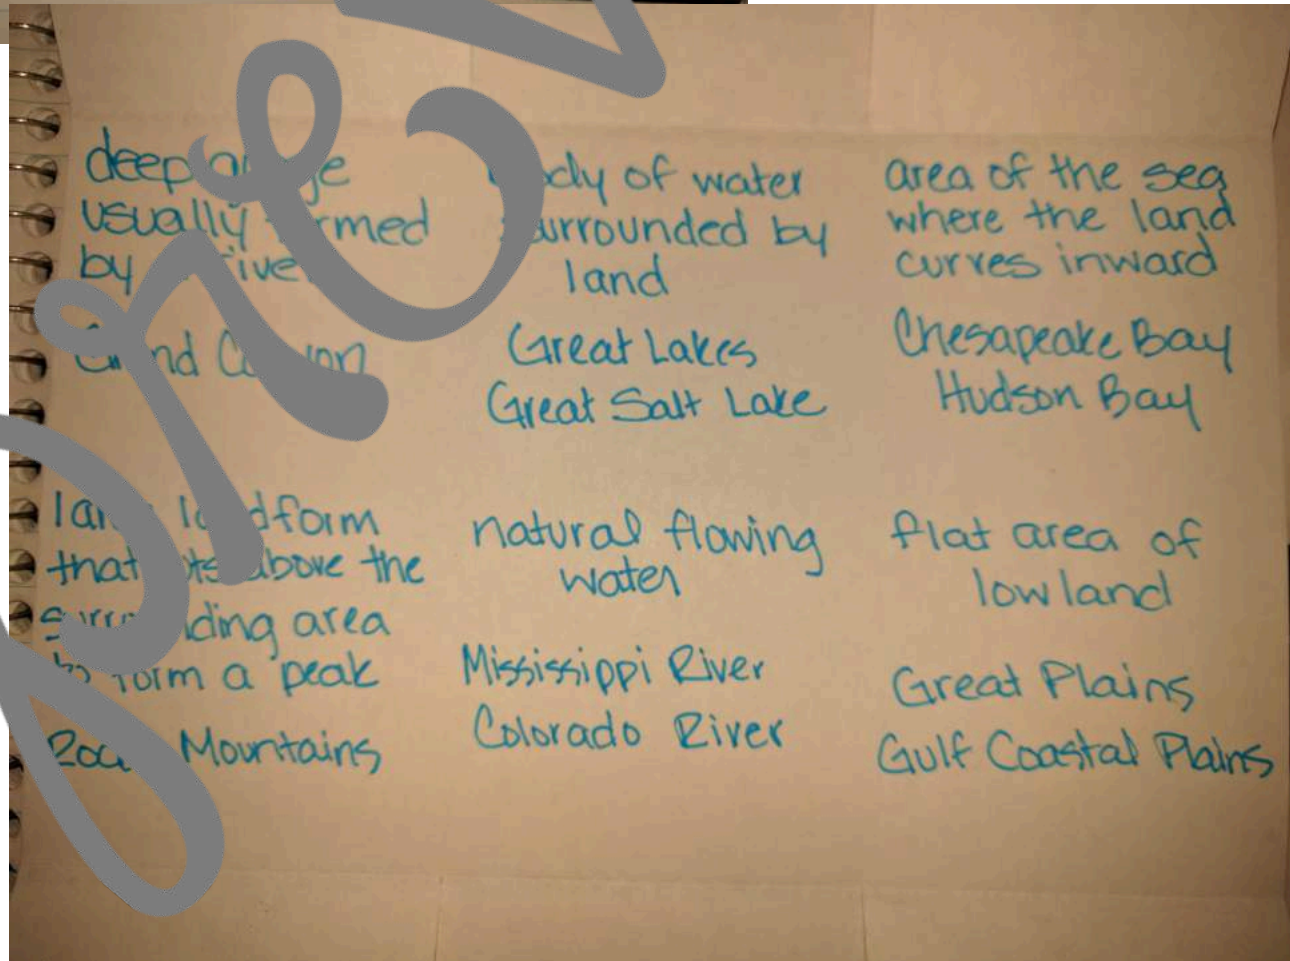 deep
usually
by
Canyon
body of water
surrounded by
land
Great Lakes
Great Salt Lake
area of the sea
where the land
curves inward
Chesapeake Bay
Hudson Bay
landform
that above the
surrounding area
to form a peak
Mountains
natural flowing
water
Mississippi River
Colorado River
flat area of
low land
Great Plains
Gulf Coastal Plains